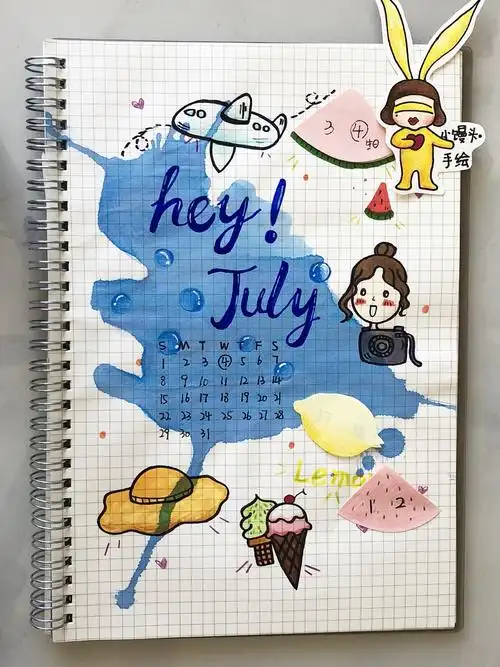 小馒头
手绘
3 ④
hey!
July
S M T W T F S
1 2 3 ④ 5 6 7
8 9 10 11 12 13 14
15 16 17 18 19 20 21
22 23 24 25 26 27 28
29 30 31
Lemo
1 2